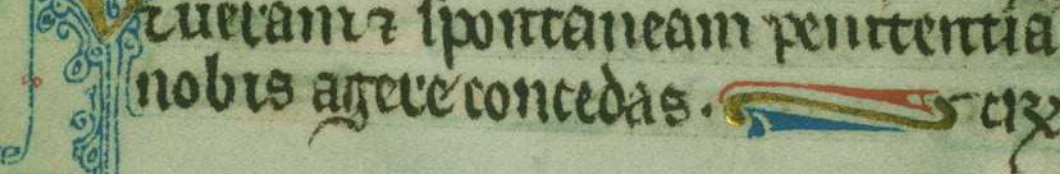 tueram ⁊ spontaneam penitentia
nobis agere concedas.